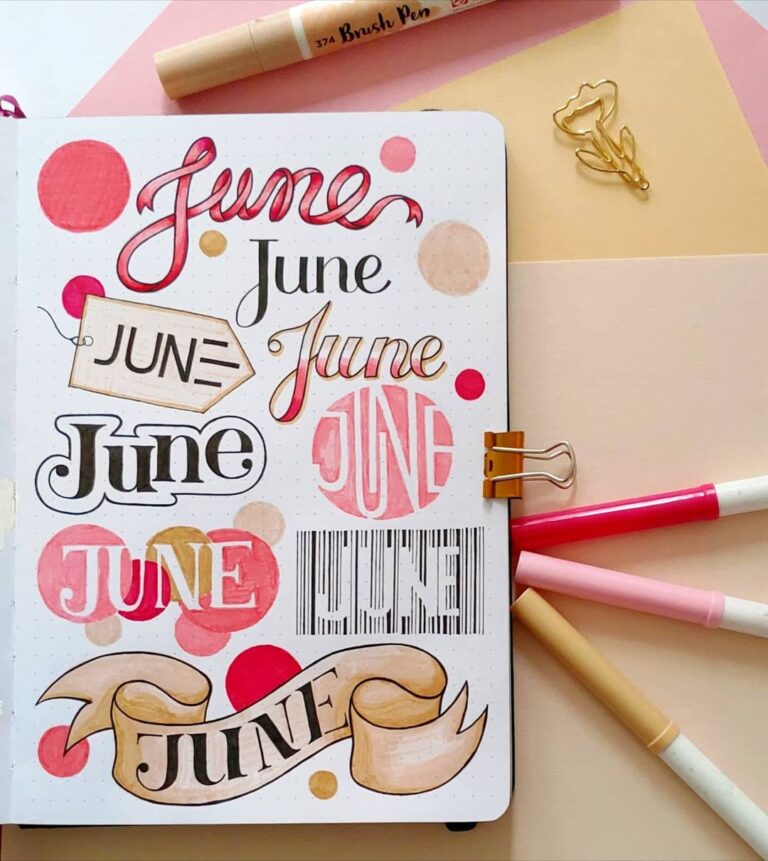 374 Brush Pen
June
June
JUNE
June
June
JUNE
JUNE
JUNE
JUNE